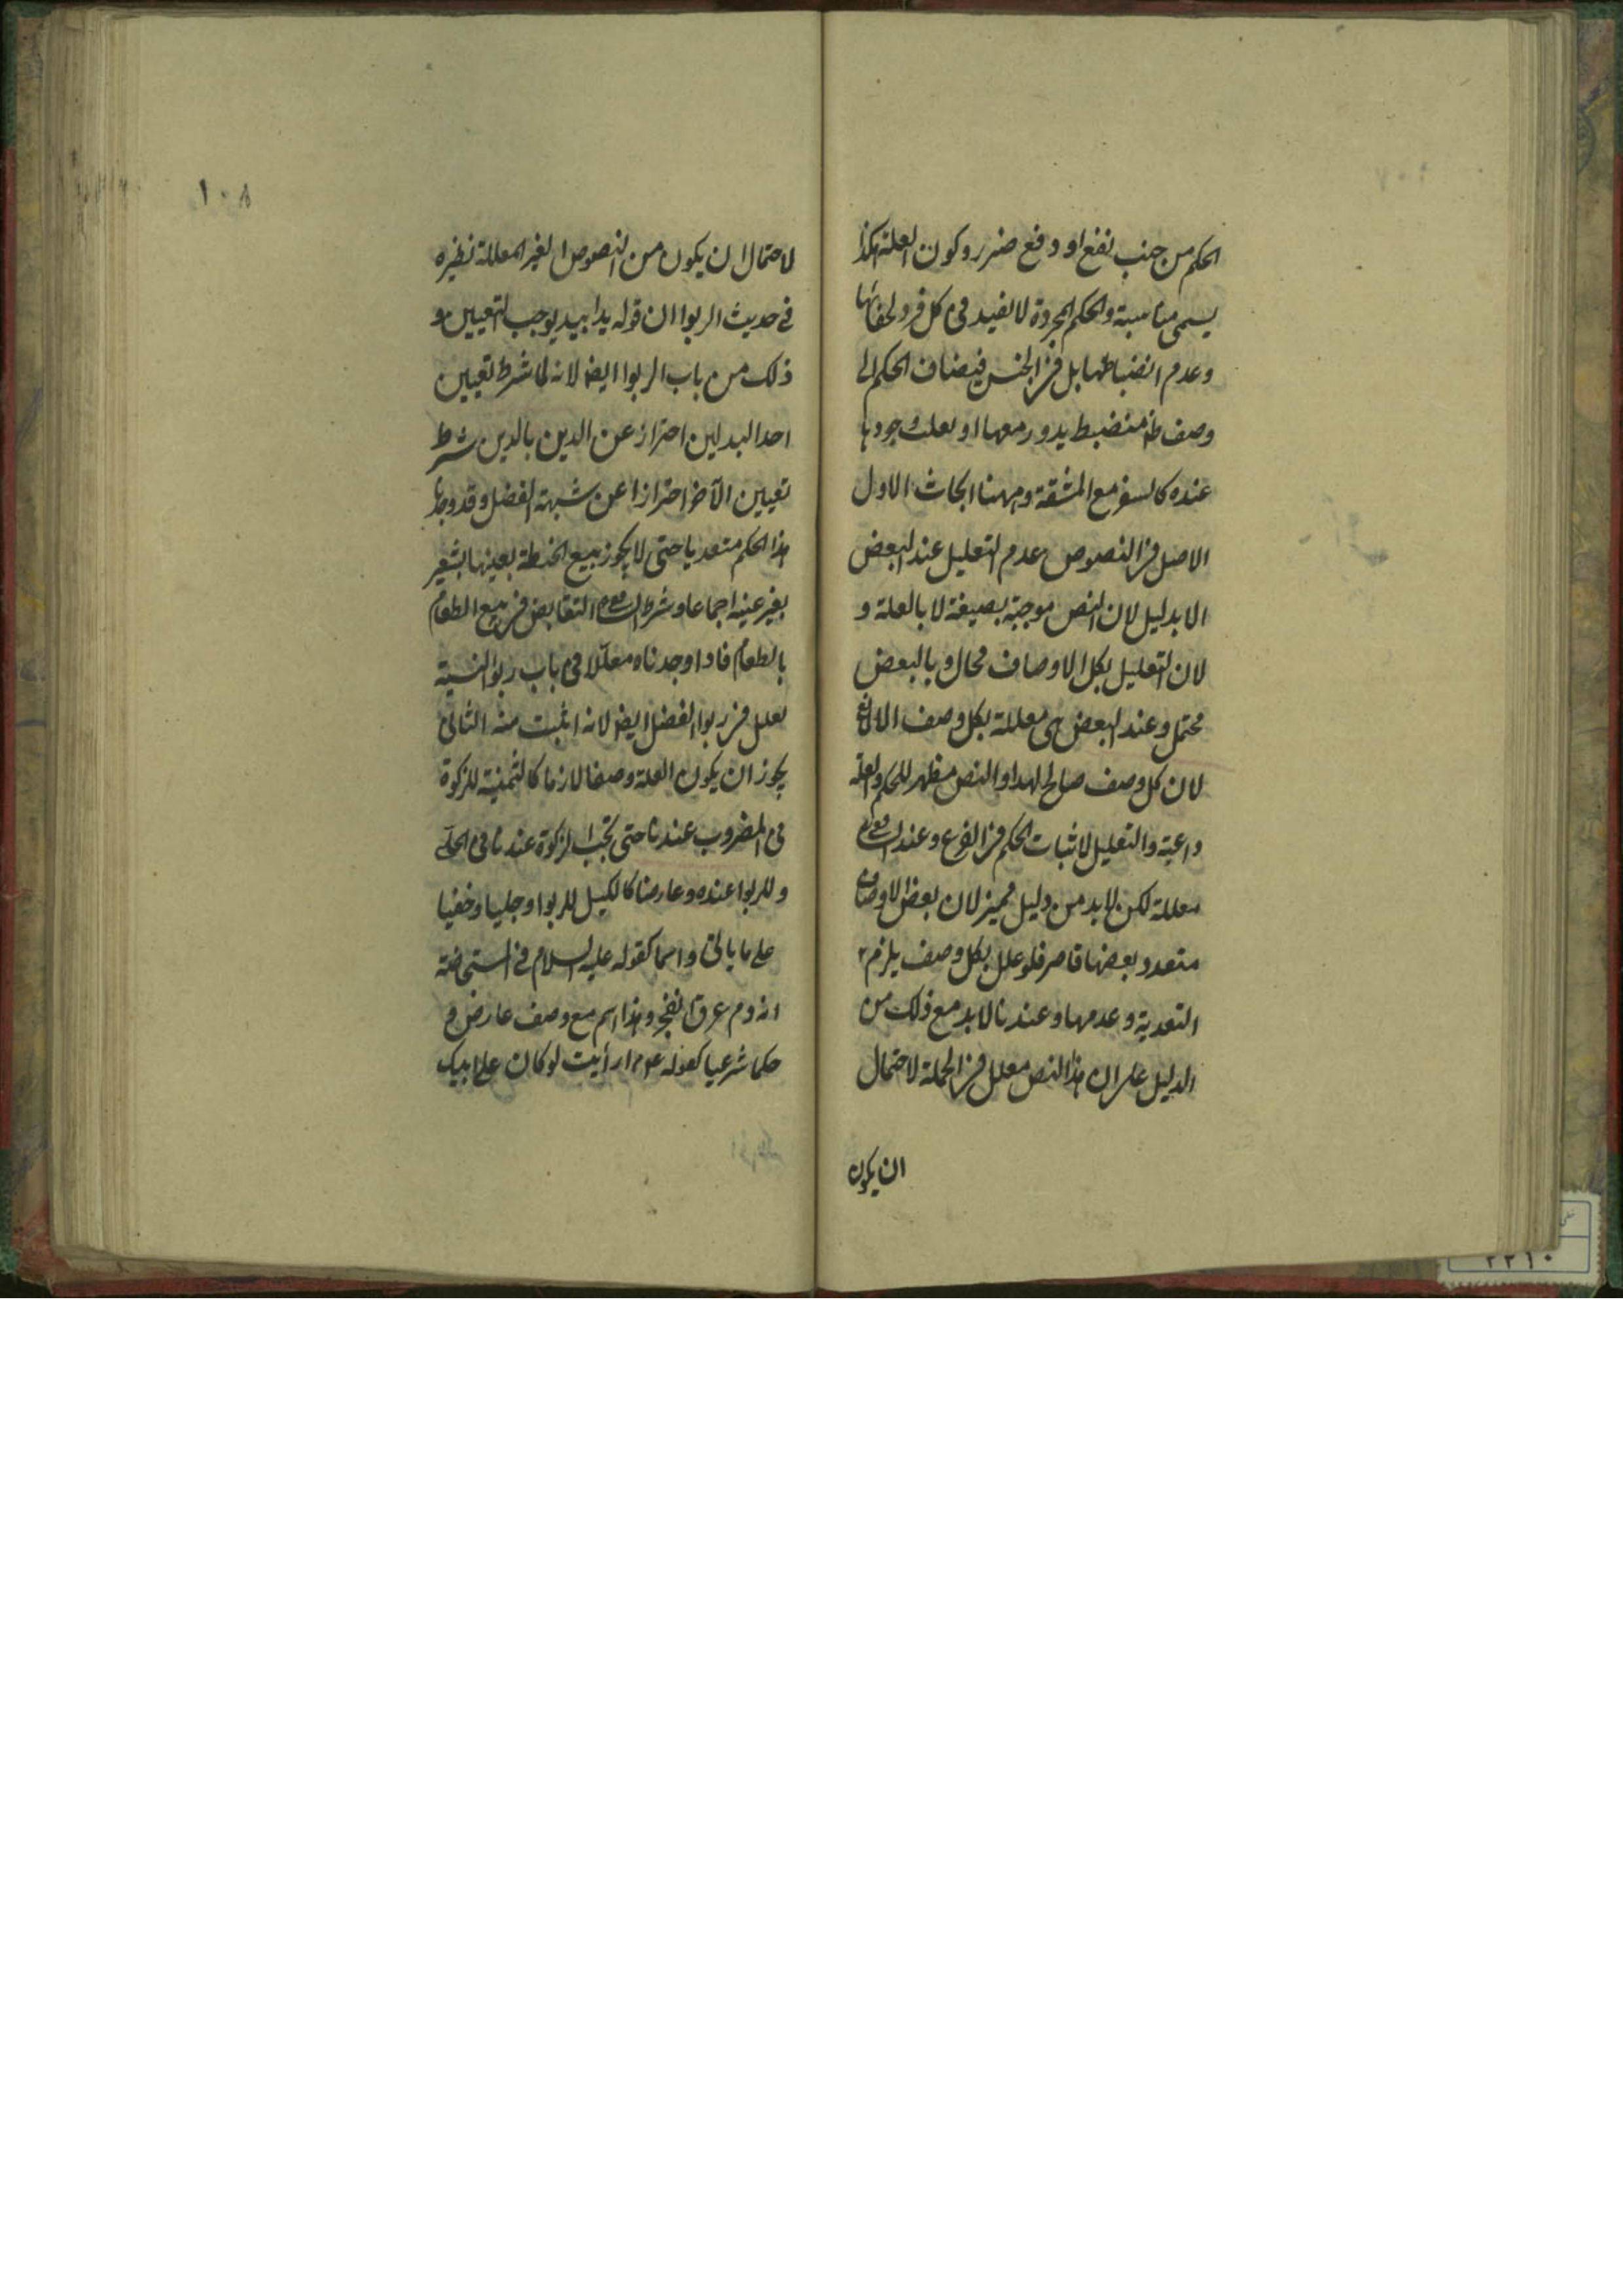 الحكم من جنب نفع او دفع ضرر وكون العلة هكذا
يسمى مناسبة والحكم المجردة لا تفيد فى كل فرد لخفائها
وعدم انضباطها بل فى الجنس فيضاف الحكم الى
وصف ظ منضبط يدور معها او يغلب وجودها
عنده كالسفر مع المشقة وههنا ابحاث الاول
الاصل فى النصوص عدم التعليل عند البعض
الا بدليل لان النص موجبة بصيغة لا بالعلة و
لان التعليل بكل الاوصاف محال و بالبعض
محتمل وعند البعض هى معللة بكل وصف الا لمانع
لان كل وصف صالح لهذا والنص مظهر للحكم والعلة
داعية والتعليل لاثبات الحكم فى الفرع وعند الشافعى
معللة لكن لا بد من دليل مميز لان بعض الاوصاف
متعدد بعضها قاصر فلو علل بكل وصف يلزم
التعدية وعدمها وعندنا لا بد مع ذلك من
الدليل على ان هذا النص معلل فى الجملة لاحتمال
ان يكون
١٠٨
لاحتمال ان يكون من النصوص الغير المعللة نظيره
فى حديث الربوا ان قوله يدا بيد يوجب التعيين و
ذلك من باب الربوا ايضا لانه لما شرط تعيين
احد البدلين احتراز عن الدين بالدين شرط
تعيين الآخر احترازا عن شبهة الفضل وقد وجدنا
هذا الحكم متعديا حتى لا يجوز بيع الحنطة بعينها بشعير
بغير عينه اجماعا وشرط الشافعى التقابض فى بيع الطعام
بالطعام فاذا وجدناه معللا فى باب ربوا النسية
يعلل فى ربوا الفضل ايضا لانه اثبت منه الثانى
يجوز ان يكون العلة وصفا لازما كالثمنية للزكوة
فى المضروب عندنا حتى تجب الزكوة عندنا فى الحلى
وللربوا عنده وعارضا كالكيل للربوا وجليا وخفيا
على ما يأتى واسما كقوله عليه السلام فى المستحاضة
انه دم عرق انفجر وهذا اسم مع وصف عارض و
حكما شرعيا كقوله عم ارأيت لو كان على ابيك
٢٢١٠